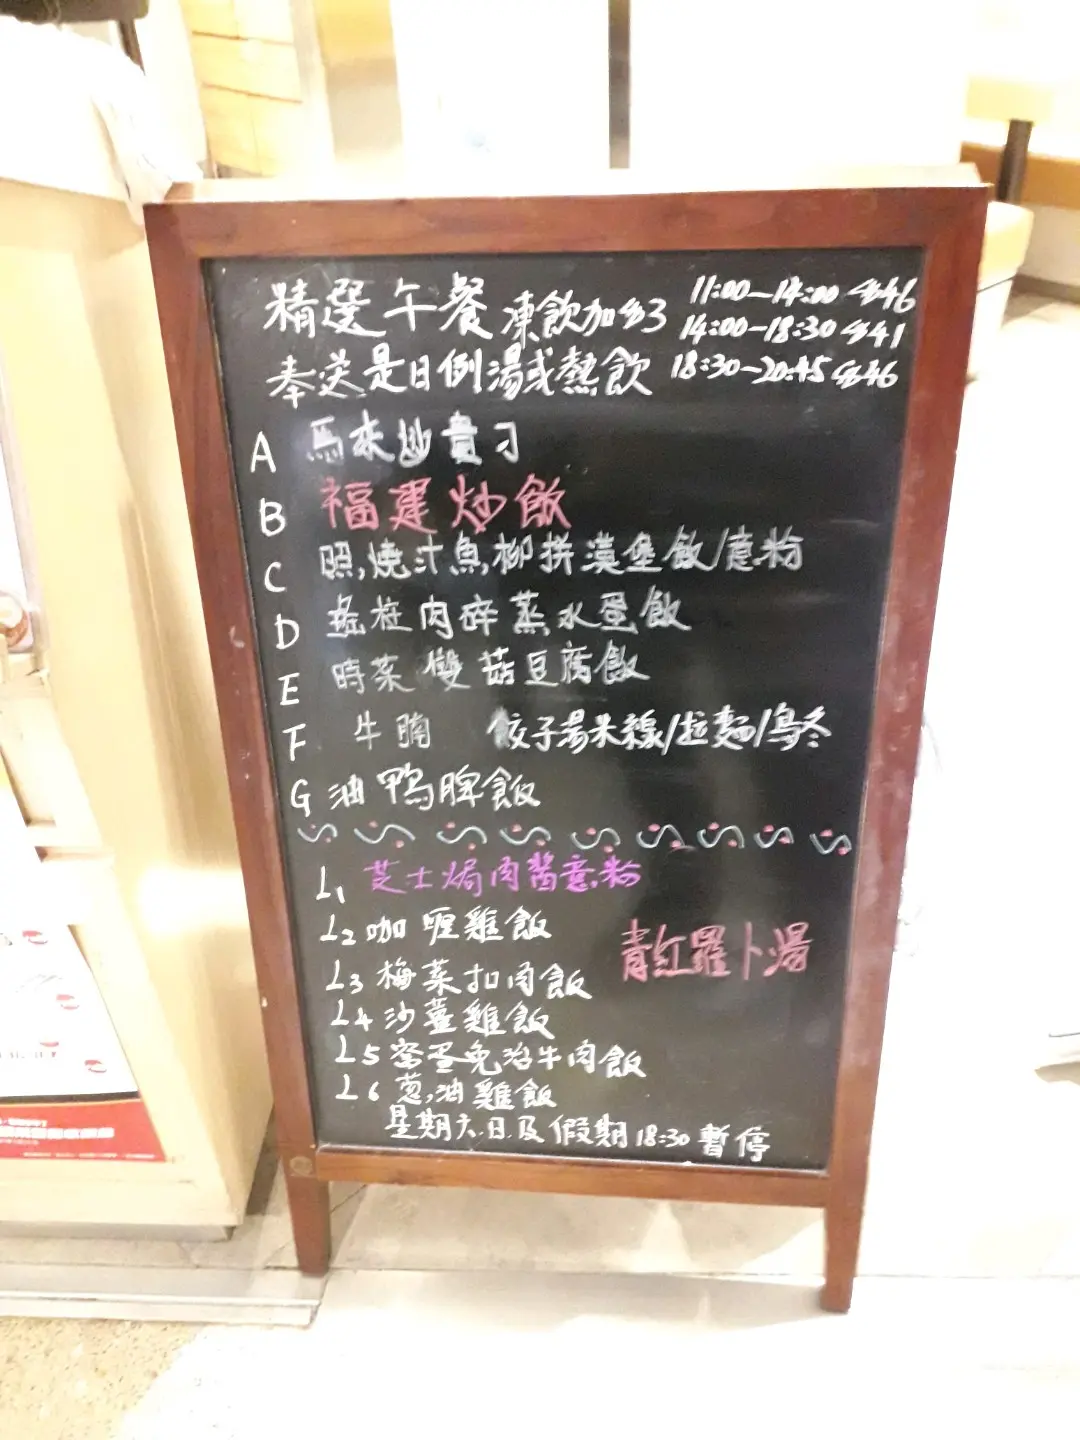 精選午餐 凍飲加$3
奉送是日例湯或熱飲
11:00-14:00 $46
14:00-18:30 $41
18:30-20:45 $46
A 馬來炒貴刁
B 福建炒飯
C 照燒汁魚柳拼漢堡飯/意粉
D 瑤柱肉碎蒸水蛋飯
E 時菜雙菇豆腐飯
F 牛腩 餃子湯米線/拉麵/烏冬
G 油鴨脾飯
L1 芝士焗肉醬意粉
L2 咖喱雞飯
L3 梅菜扣肉飯
L4 沙薑雞飯
L5 窩蛋免治牛肉飯
L6 蔥油雞飯
青紅羅卜湯
星期六.日.及假期18:30暫停